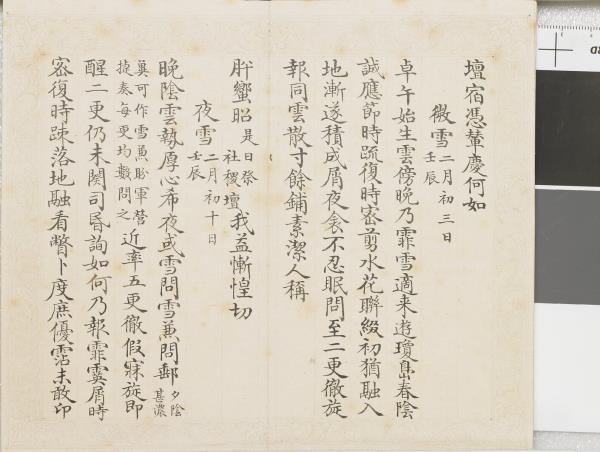 壇宿憑輦慶何如
微雪二月初三日
壬辰
卓午始生雲傍晚乃霏雪適来遊瓊島春陰
誠應節時疏復時密剪水花聯綴初猶融入
地漸遂積成屑夜衾不忍眠問至二更徹旋
報同雲散寸餘鋪素潔人稱
肸蠁昭是日祭
社稷壇我益慚惶切
夜雪二月初十日
壬辰
晚陰雲執厚心希夜或雪問雪兼問郵夕陰
甚濃
冀可作雪兼盼軍營
捷奏每更均數問之近率五更徹假寐旋即
醒二更仍未闋司昏詢如何乃報霏霙屑時
密復時疎落地融看瞥卜度庶優霑未敢印